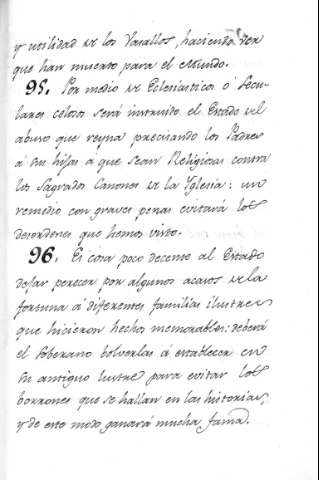 y utilidad de los Vasallos, haciendo ver
que han muerto para el Mundo.
95. Por medio de Eclesiasticos ó Secu-
lares celosos será instruido el Estado del
abuso que reyna precisando los Padres
á su hijas a que sean Religiosas contra
los Sagrados Canones de la Yglesia: un
remedio con graves penas evitará los
desordenes que hemos visto.
96. Es cosa poco decente al Estado
dejar perecer por algunos acasos de la
fortuna a diferentes familias ilustres
que hicieron hechos memorables: deberá
el Soberano bolverlas á establecer en
su antiguo lustre para evitar los
borrones que se hallan en las historias,
y de este modo ganará mucha fama.